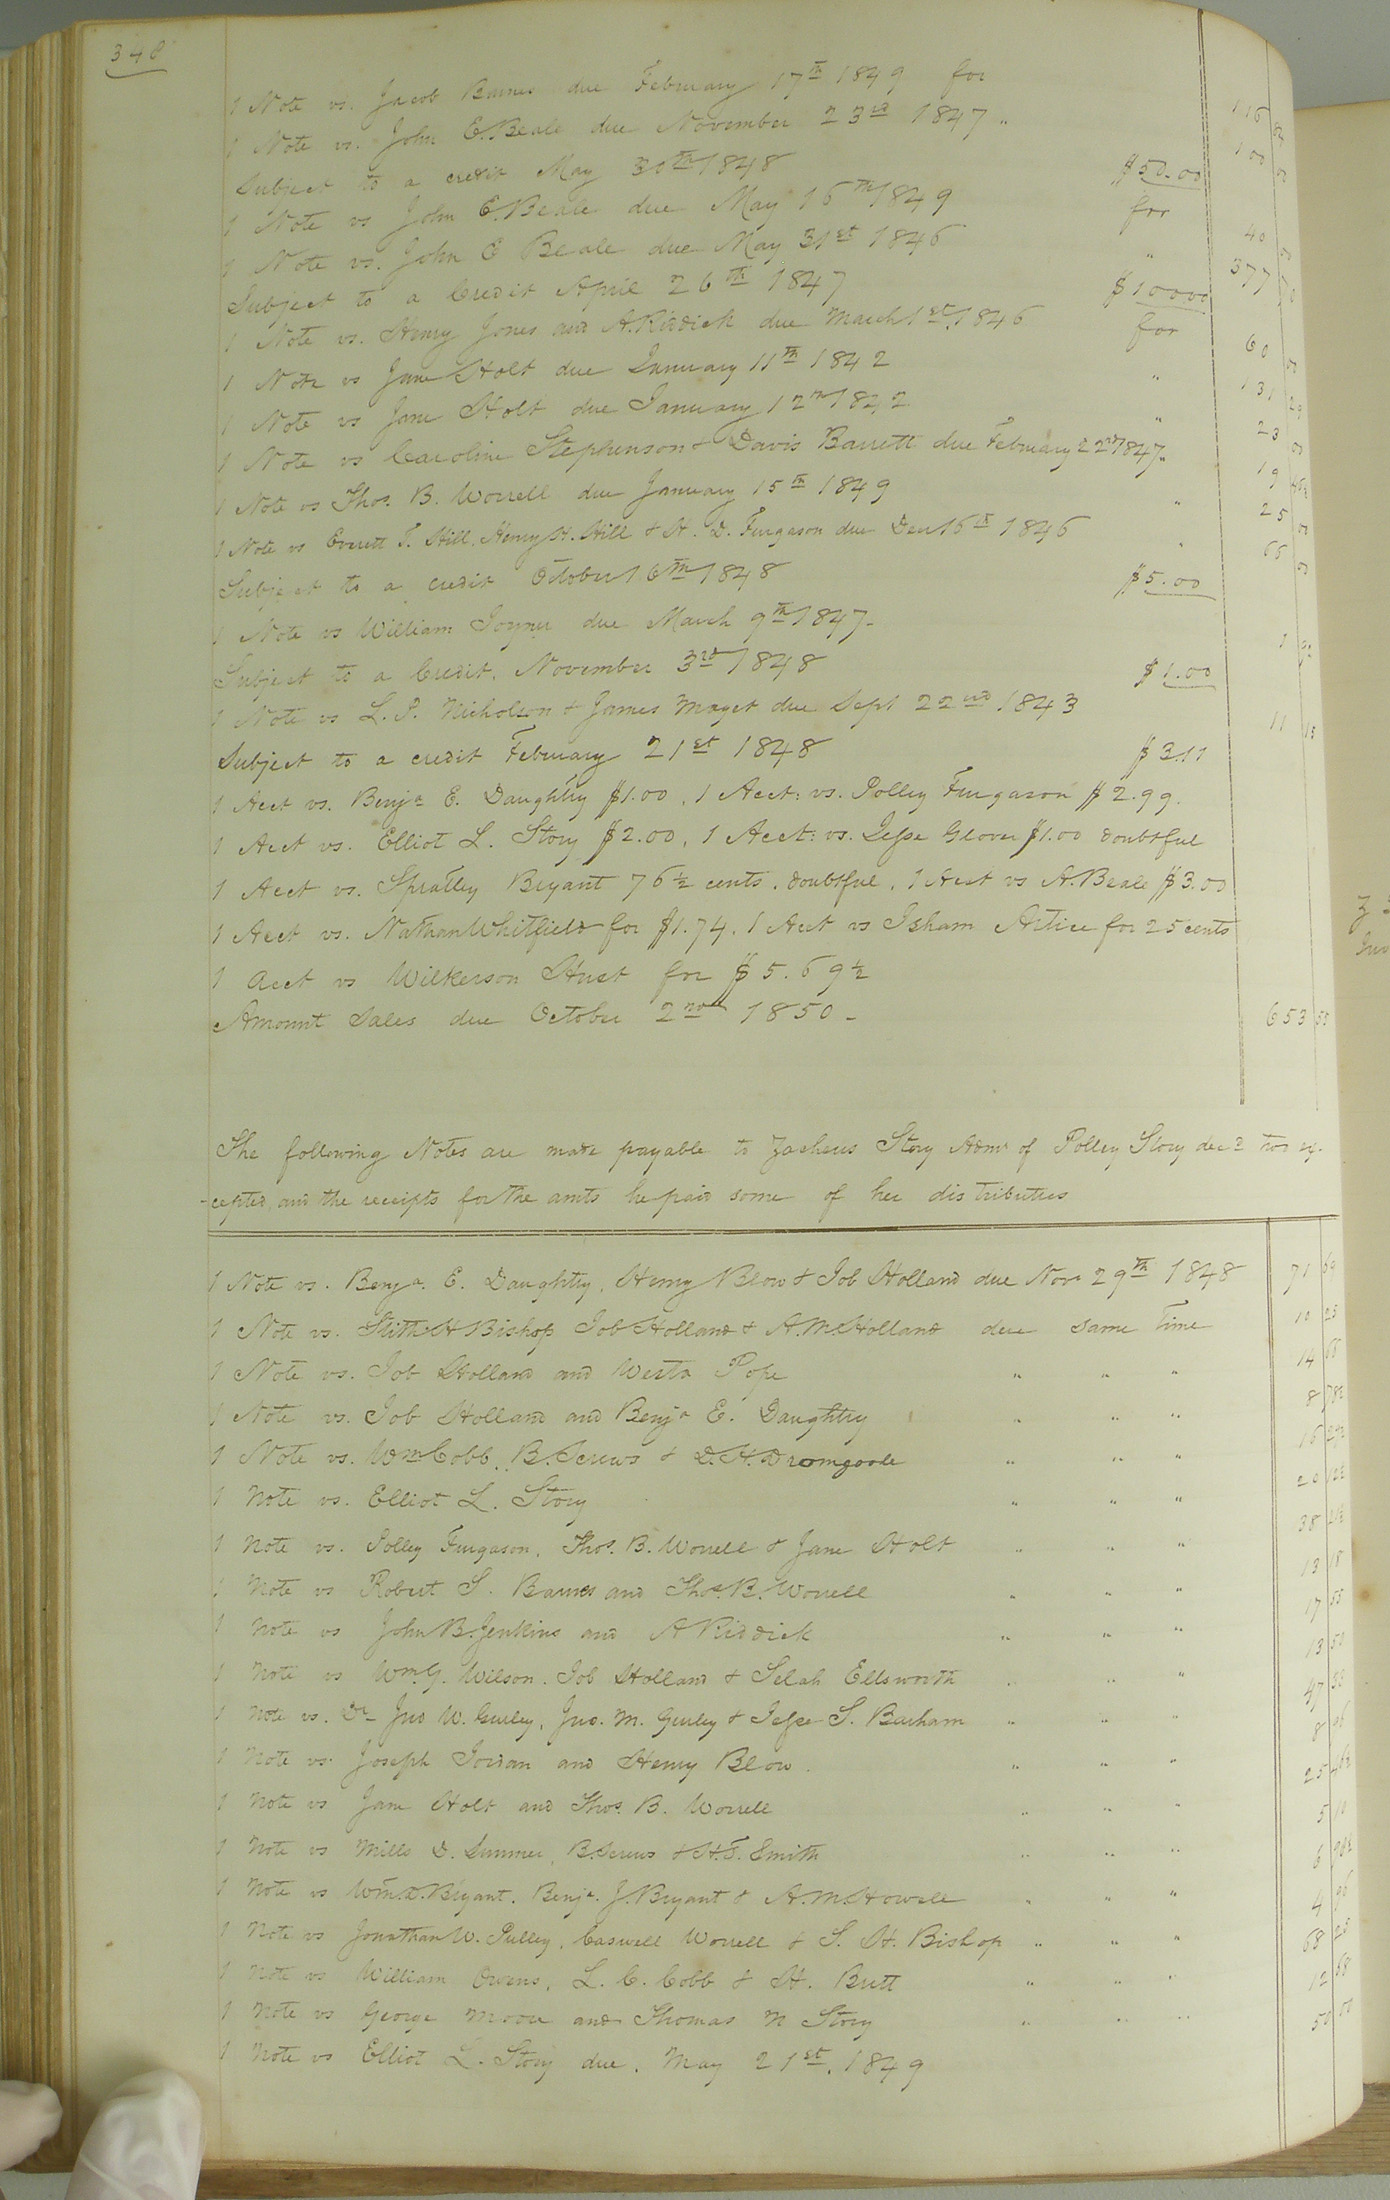 348
1 Note vs. Jacob Barnes due February 17th 1849 for 116
1 Note vs. John E. Beale due November 23rd 1847 " 100
Subject to a credit May 30th 1848 $50.00
1 Note vs John E. Beale due May 16th 1849 for 40
1 Note vs. John E Beale due May 31st 1846 " 377
Subject to a Credit April 26th 1847 $100.00
1 Note vs. Henry Jones and A. Riddick due March 1st, 1846 for 60
1 Note vs Jane Holt due January 11th 1842 " 131 29
1 Note vs Jane Holt due January 12th 1842 " 23
1 Note vs Caroline Stephenson & Davis Barrett due February 22nd 1847 " 19
1 Note vs Thos. B. Worrell due January 15th 1849 " 25
1 Note vs Everett T. Hill, Henry H. Hill & H. D. Furgason due Dec 16th 1846 " 65
Subject to a credit October 16th 1848 $5.00
1 Note vs William Joyner due March 9th 1847- 1
Subject to a Credit, November 3rd 1848 $1.00
1 Note vs L. P. Nicholson & James Maget due Sept 22nd 1843 11 15
Subject to a credit February 21st 1848 $3.11
1 Acct vs. Benja E. Daughtry $1.00, 1 Acct: vs. Polley Furgason $2.99.
1 Acct vs. Elliot L. Story $2.00, 1 Acct: vs. Jesse Glover $1.00 doubtful
1 Acct vs. Spratley Bryant 76½ cents, doubtful, 1 Acct vs A. Beale $3.00
1 Acct vs. Nathan Whitfield for $1.74. 1 Acct vs Isham Artice for 25 cents
1 acct vs Wilkerson Hust for $5.69½
Amount Sales due October 2nd 1850 - 653 55
The following Notes are made payable to Zacheus Story Admr of Polley Story decd two ex-
-cepted, and the receipts for the amts he paid some of her distributees
1 Note vs. Benja. E. Daughtry, Henry Blow & Job Holland due Nov 29th 1848 71 69
1 Note vs. Stith H Bishop Job Holland & A. M. Holland due same time 10 25
1 Note vs. Job Holland and Westa Pope " " " 14
1 Note vs. Job Holland and Benja E. Daughtry " " " 8 78½
1 Note vs. Wm Cobb, B. Screws & D. H. Dromgoole " " " 16 27½
1 Note vs. Elliot L. Story " " " 20 12½
1 Note vs. Polley Furgason, Thos. B. Worrell & Jane Holt " " " 38 21½
1 Note vs Robert S. Barnes and Thos. B. Worrell " " " 13 18
1 Note vs John B. Jenkins and A Riddick " " " 17 55
1 Note vs Wm G. Wilson, Job Holland & Selah Ellsworth " " " 13 50
1 Note vs. Dr Jno W. Gurley, Jno. M. Gurley & Jesse S. Barham " " " 47
1 Note vs. Joseph Jordan and Henry Blow " " " 8 96
1 Note vs Jane Holt and Thos. B. Worrell " " " 25
1 Note vs Mills D. Sumner, B. Screws & H. T. Smith " " " 5 10
1 Note vs Wm D. Bryant, Benja. J. Bryant & A. M. Howell " " " 6 90½
1 Note vs Jonathan W. Pulley, Caswell Worrell & S. H. Bishop " " " 4 96
1 Note vs William Owens, L. C. Cobb & H. Butt " " " 68 25
1 Note vs George Moore and Thomas N Story " " " 12 58
1 Note vs Elliot L. Story due, May 21st, 1849 50 00